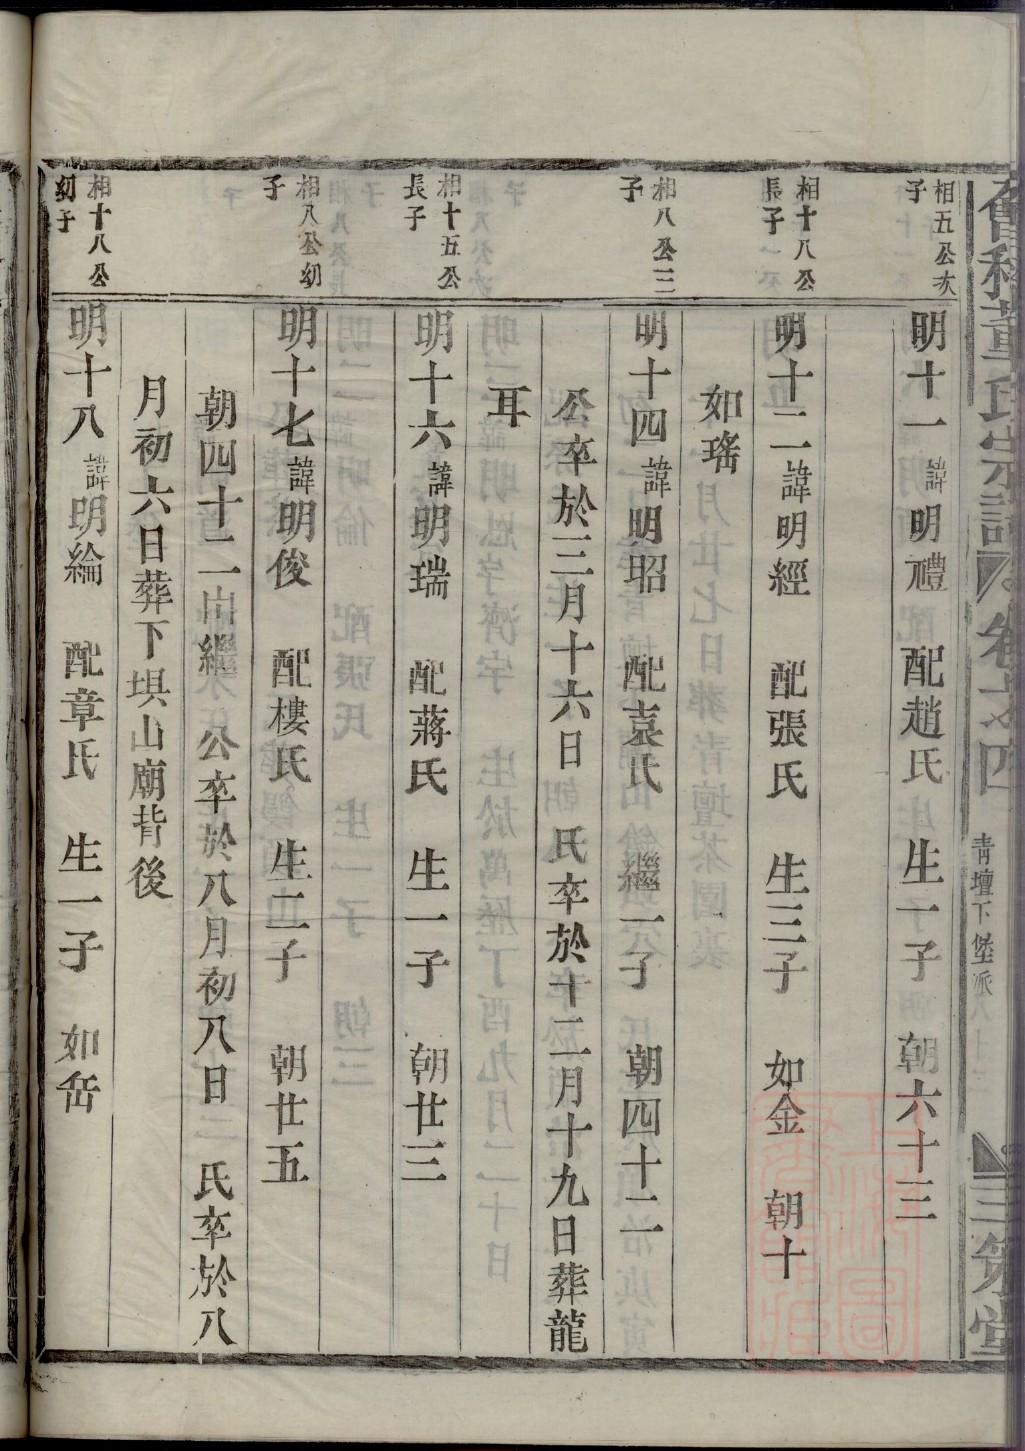 董氏宗譜 卷之四 青壇下堡派 三策堂
相五公次子
明十一 諱明禮 配趙氏 生一子 朝六十三
相十八公長子
明十二 諱明經 配張氏 生三子 如金 朝十
如瑤
相八公三子
明十四 諱明昭 配袁氏 繼一子 朝四十二
公卒於三月十六日 氏卒於十二月十九日葬龍
耳
相十五公長子
明十六 諱明瑞 配蔣氏 生一子 朝廿三
相八公幼子
明十七 諱明俊 配樓氏 生二子 朝廿五
朝四十二出繼 公卒於八月初八日 氏卒於八
月初六日葬下垻山廟背後
相十八公幼子
明十八 諱明綸 配章氏 生一子 如岳